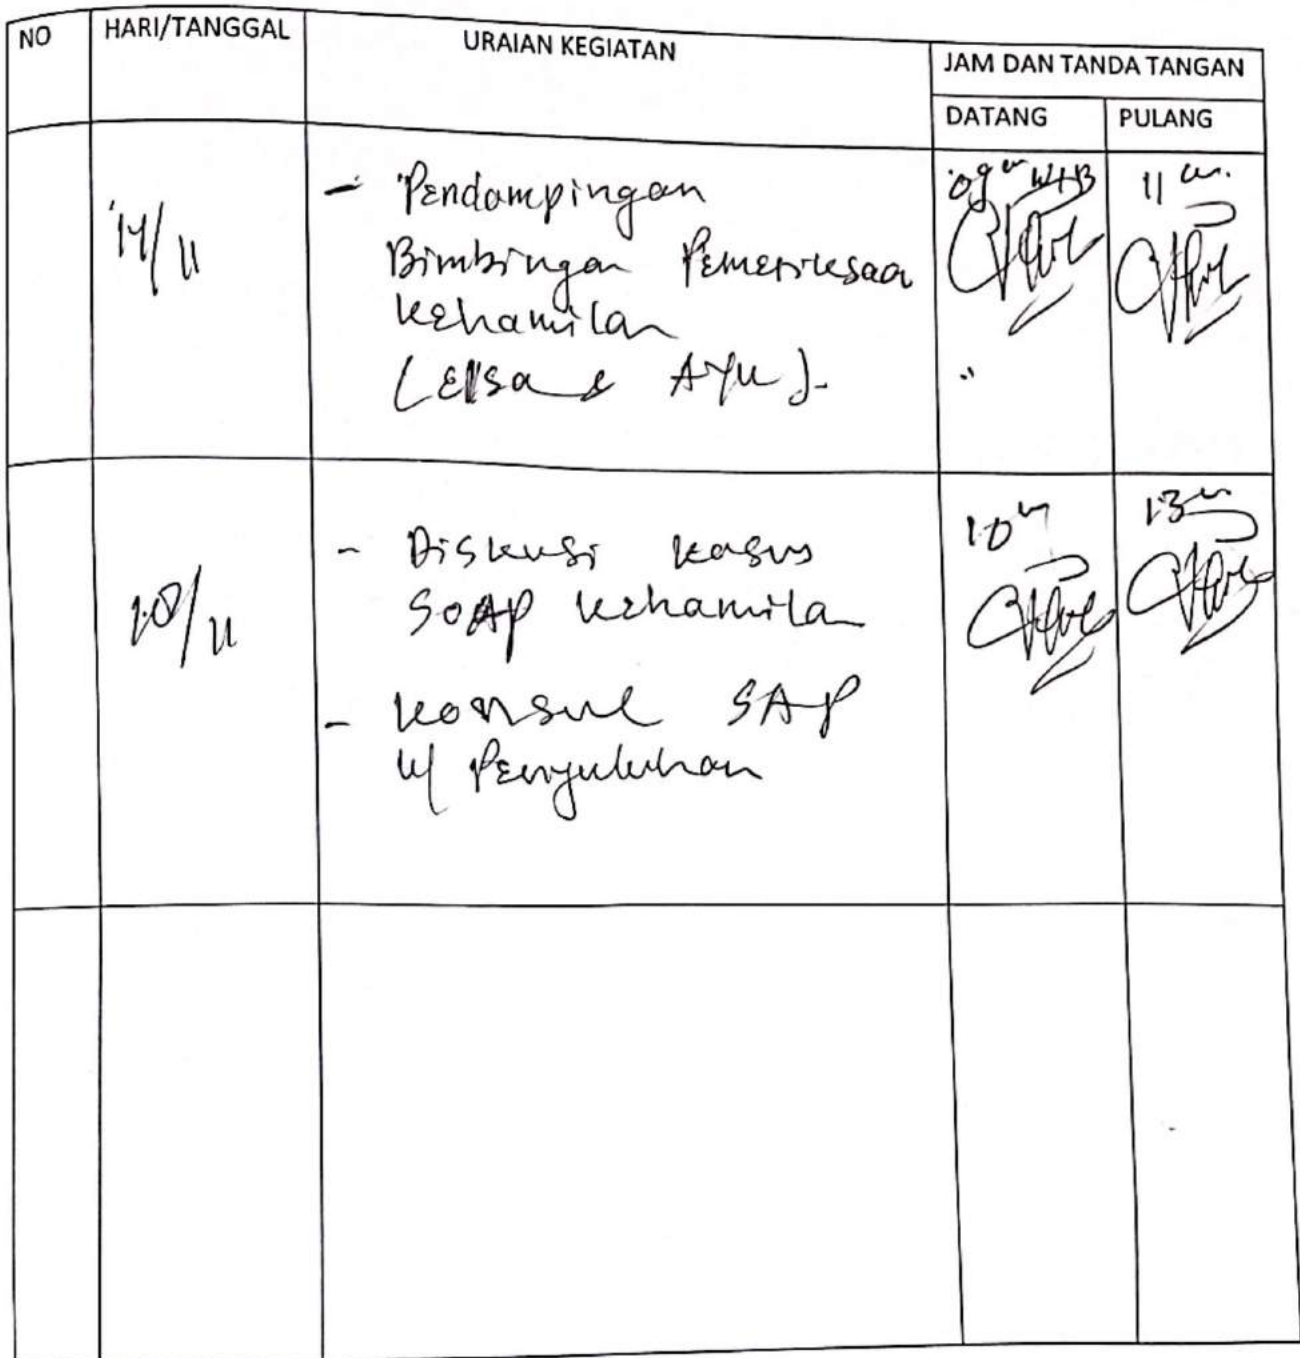 NO HARI/TANGGAL URAIAN KEGIATAN JAM DAN TANDA TANGAN
DATANG PULANG
- Pendampingan
Bimbingan Pemeriksaan
kehamilan
(Elsa & AYU).
09 WIB
11
- Diskusi kasus
SOAP kehamilan
- Konsul SAP
u/ Penyuluhan
10
13